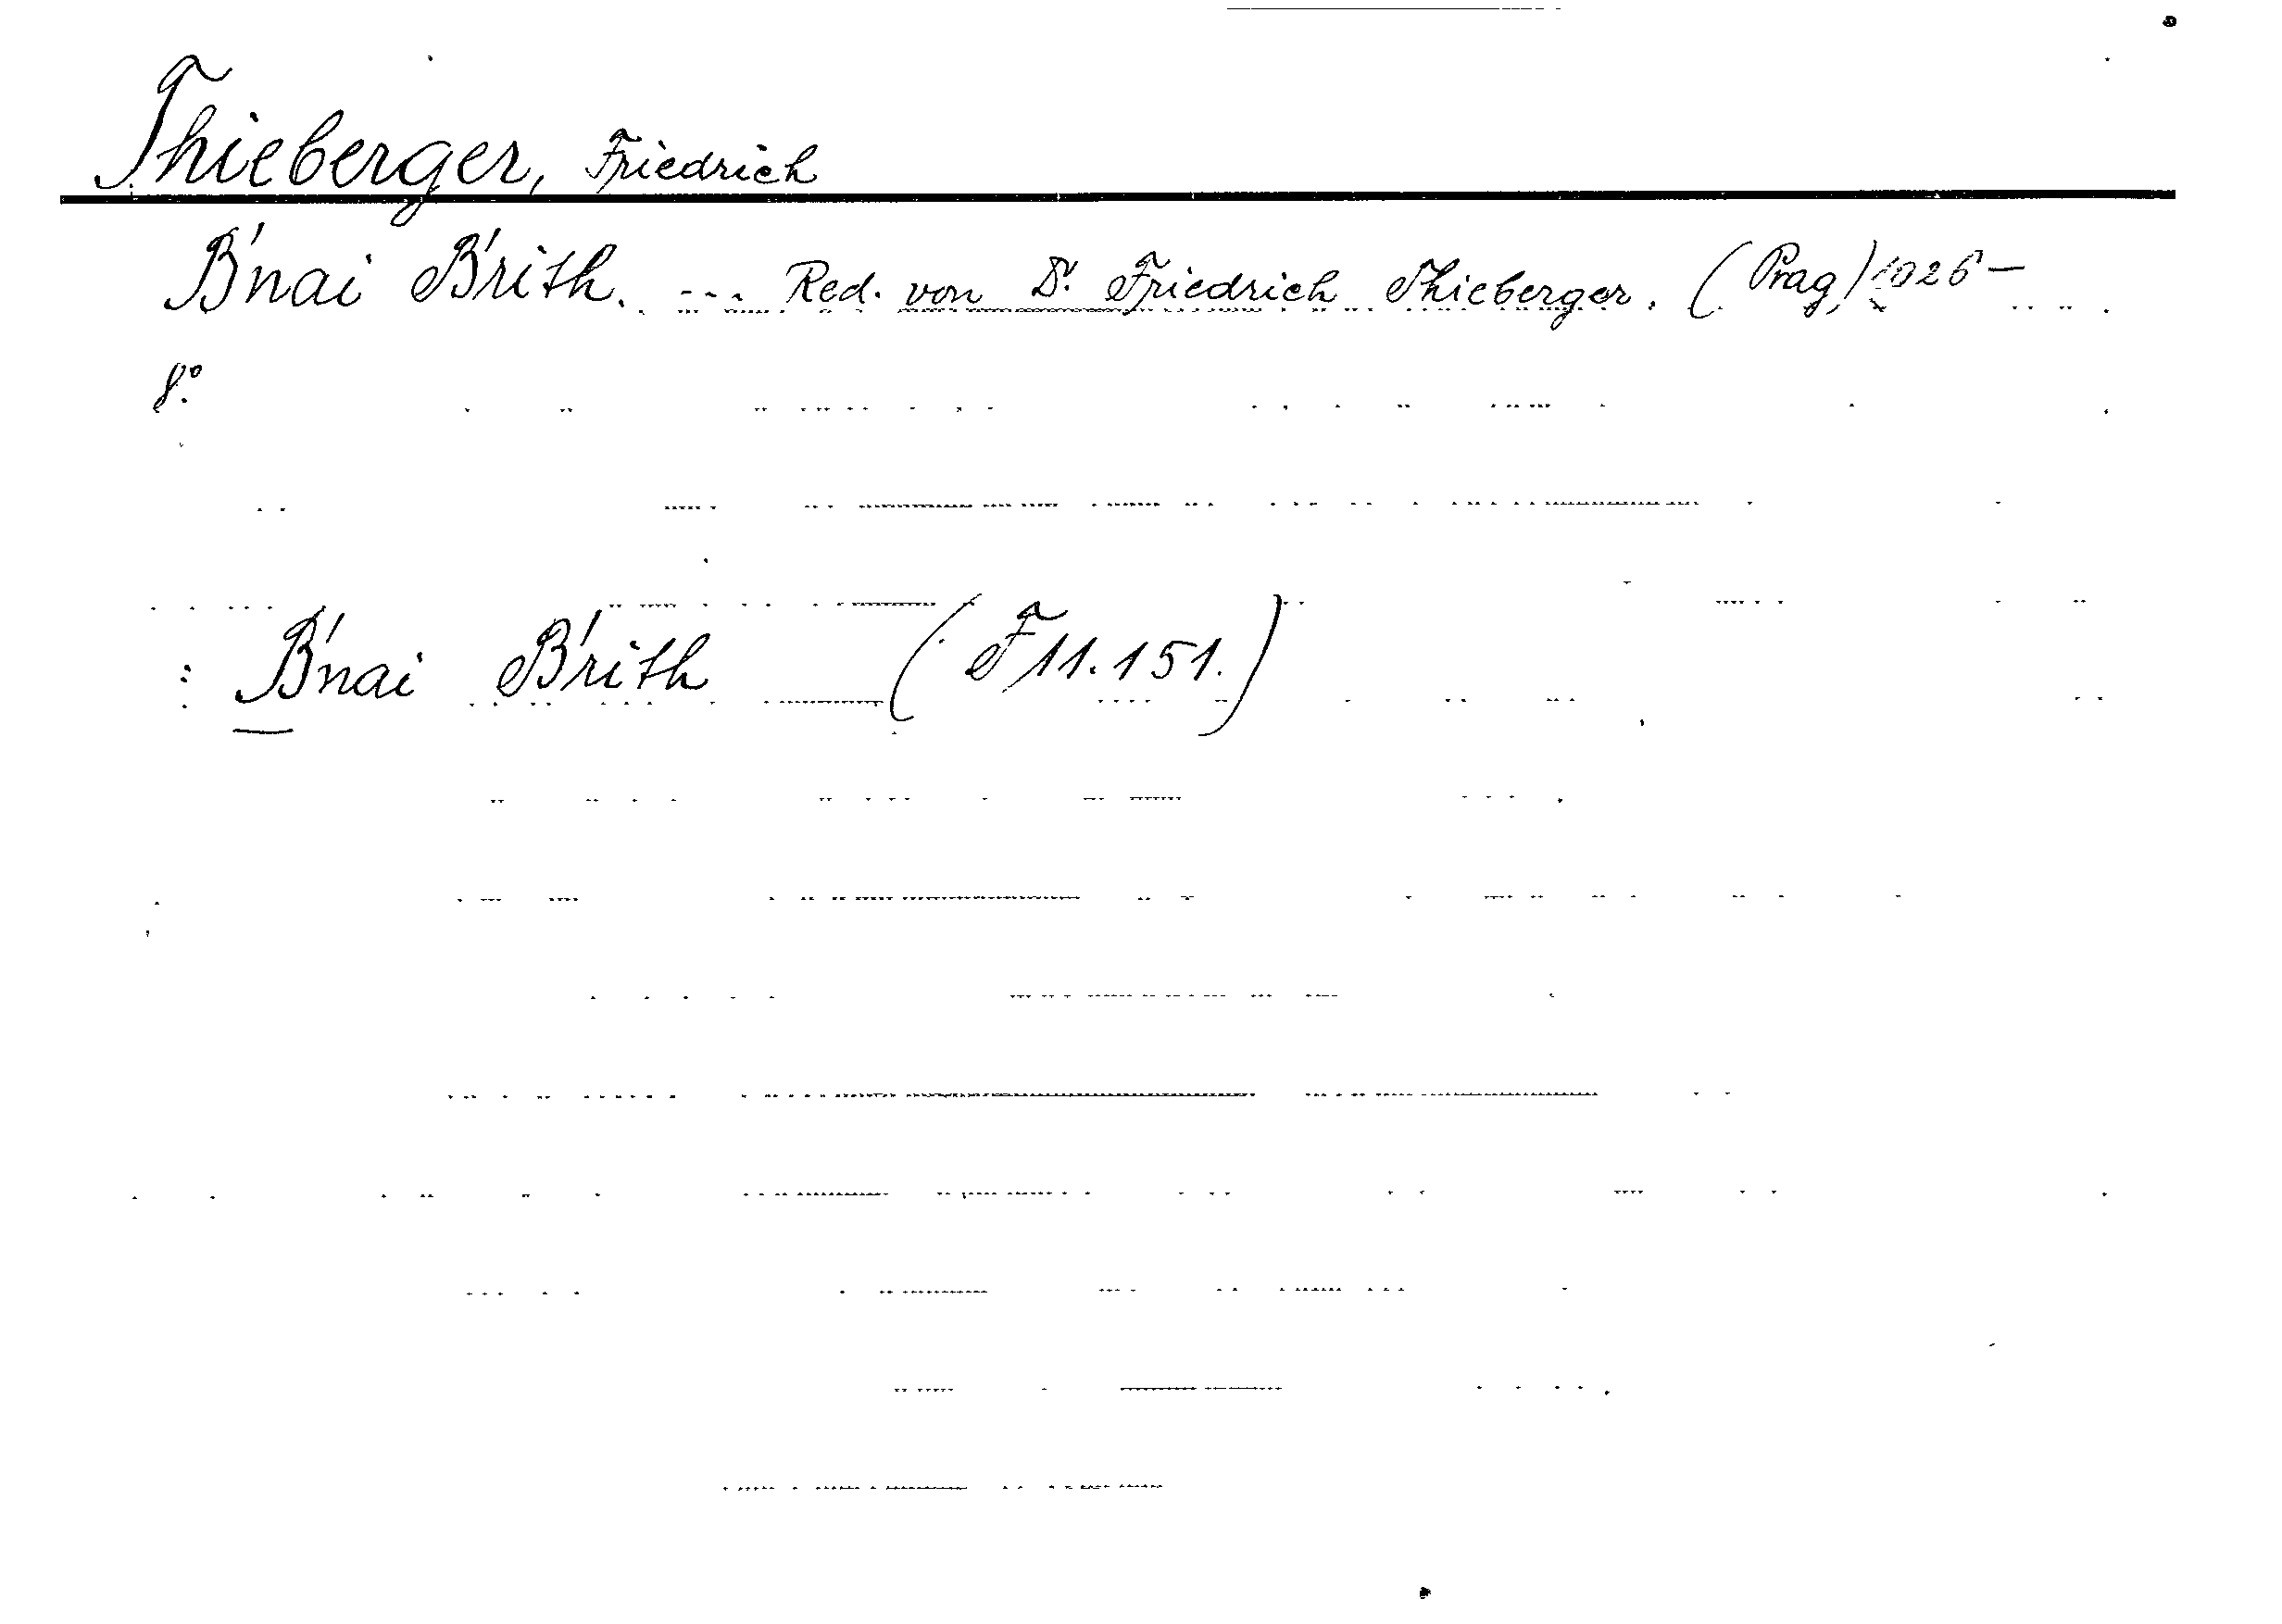 Thieberger, Friedrich
B'nai B'rith. --- Red. von Dr. Friedrich Thieberger. (Prag,) 1926—
8°.
: B'nai B'rith (F 11.151.)